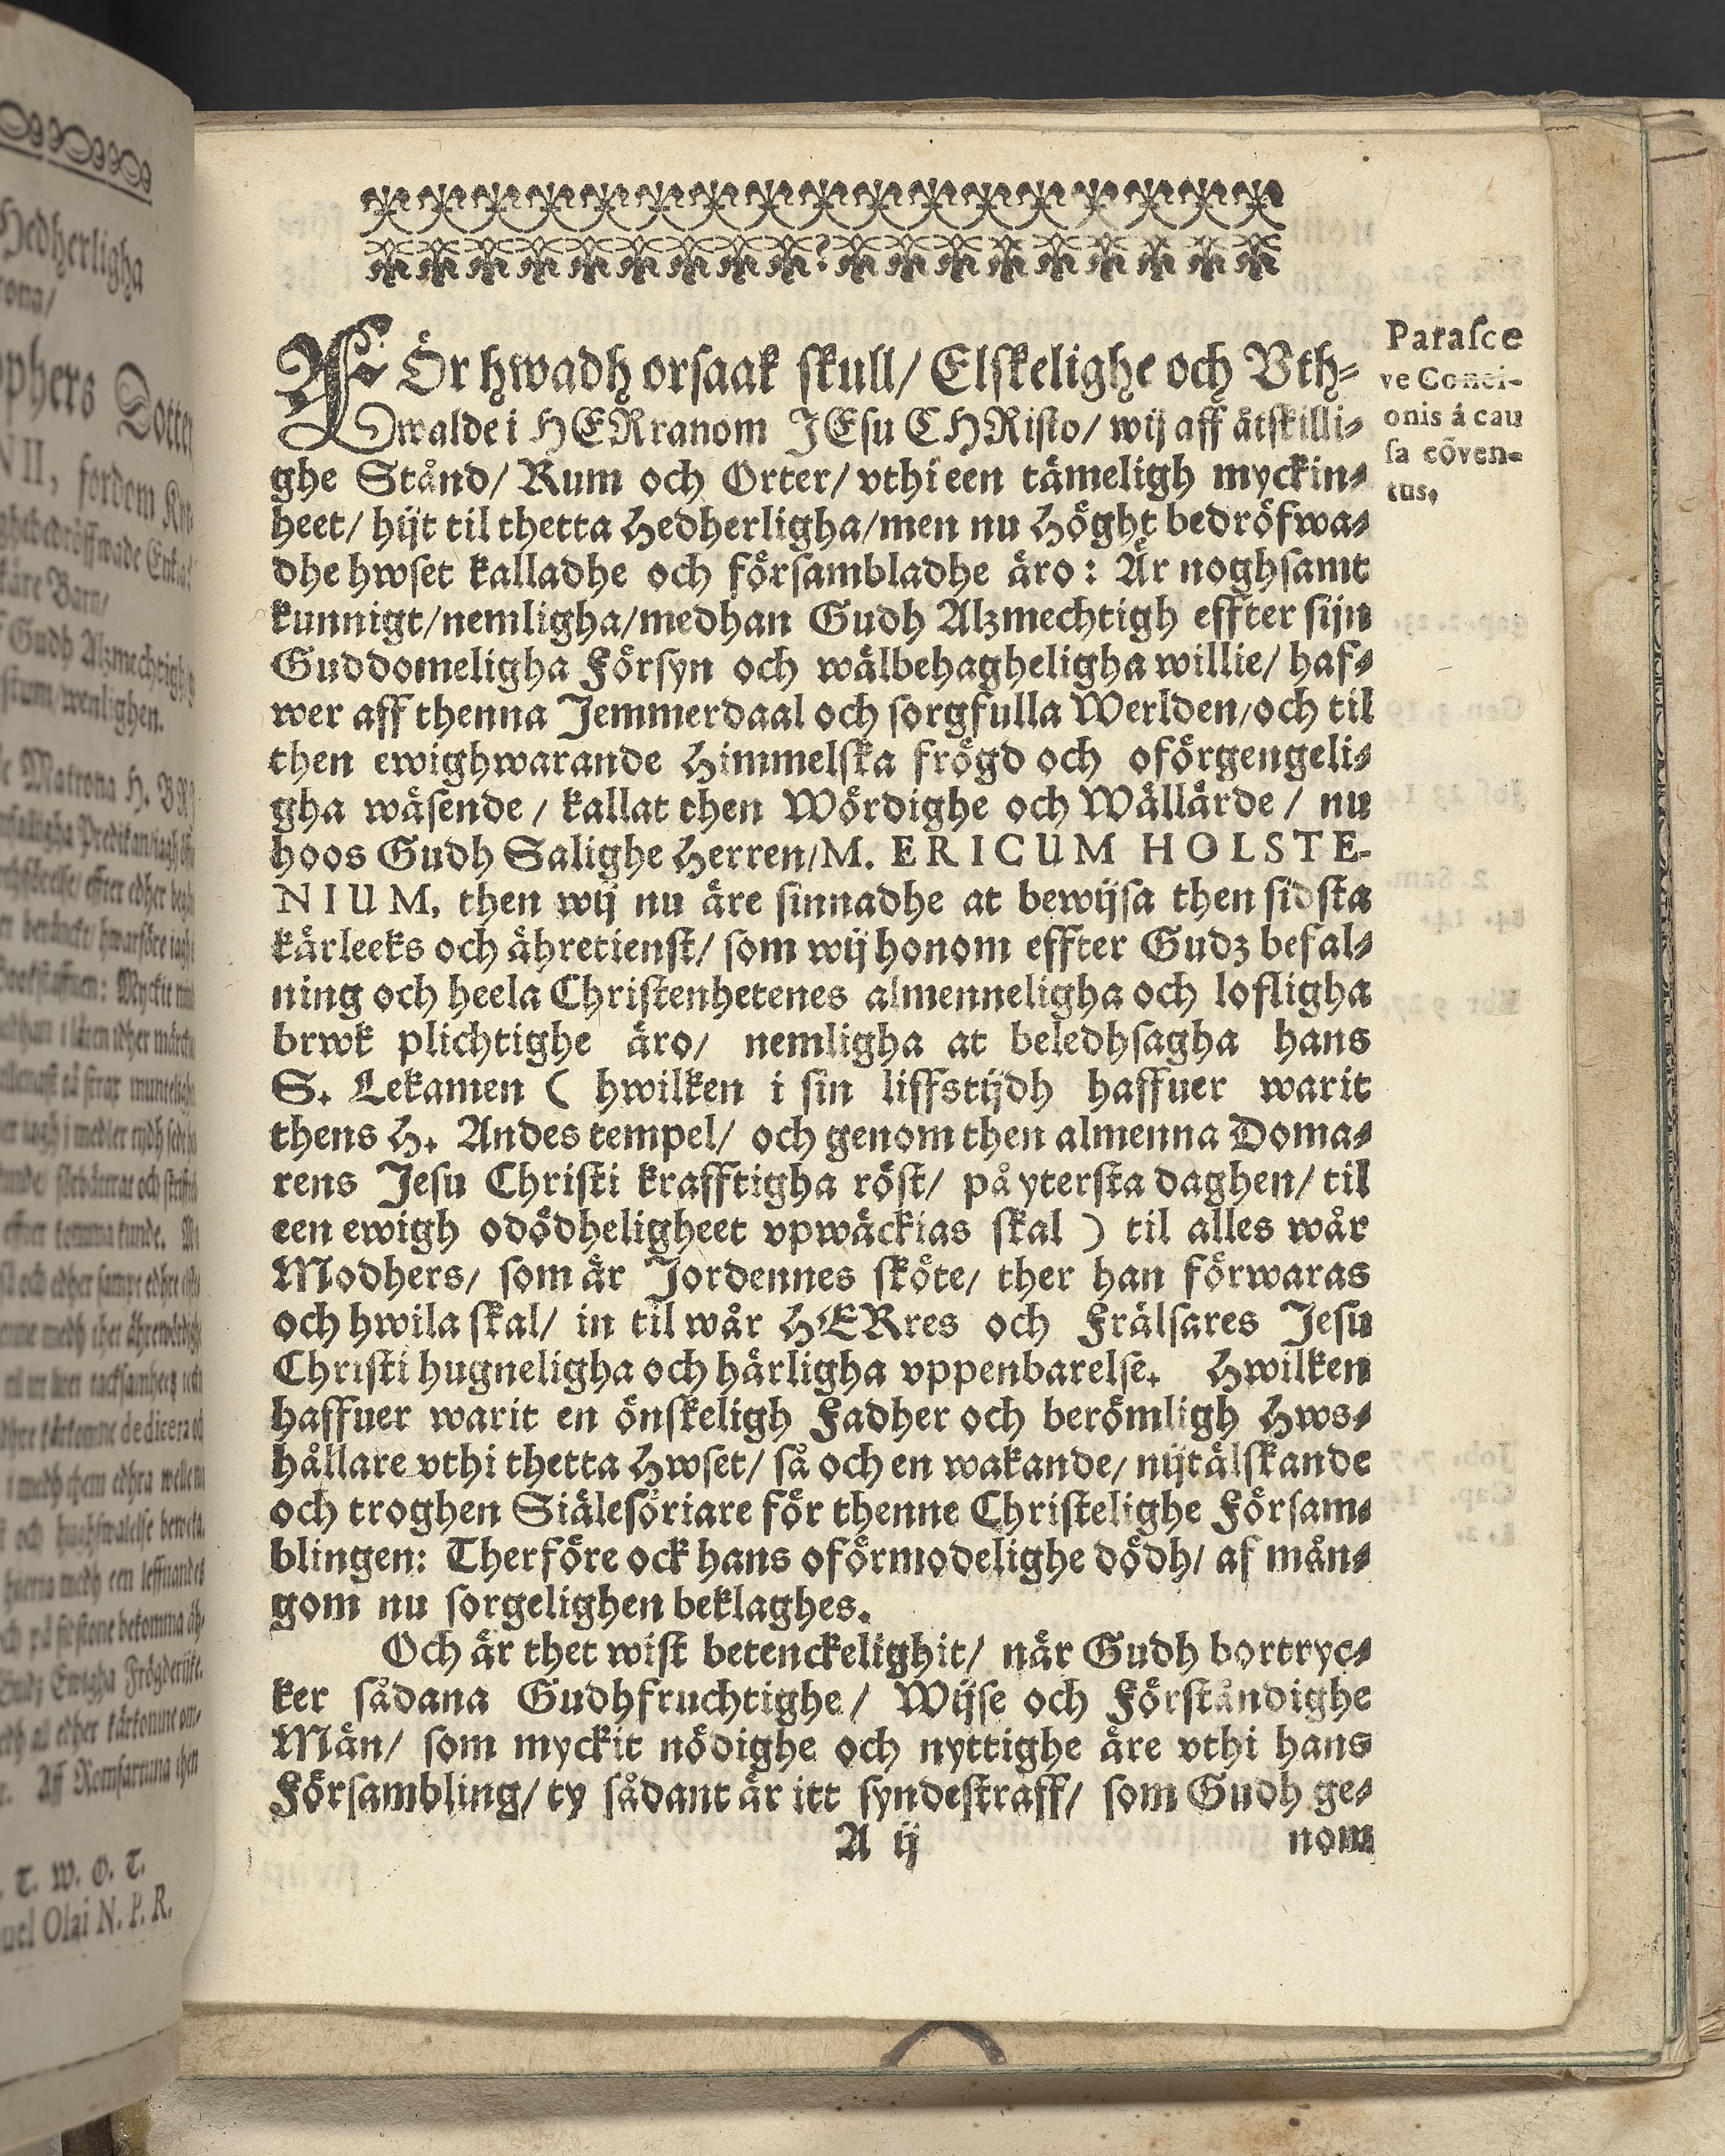 FÖr hwadh orsaak skull/ Elskelighe och Vth-
walde i HERranom JEsu CHRisto/ wij aff åtskilli-
ghe Stånd/ Rum och Orter/ vthi een tämeligh myckin-
heet/ hijt til thetta Hedherligha/men nu Höght bedröfwa-
dhe hwset kalladhe och försambladhe äro: Är noghsamt
kunnigt/nemligha/medhan Gudh Alzmechtigh effter sijn
Guddomeligha Försyn och wälbehagheligha willie/ haf-
wer aff thenna Jemmerdaal och sorgfulla Werlden/och til
then ewighwarande Himmelska frögd och oförgengeli-
gha wäsende / kallat then Wördighe och Wällärde / nu
hoos Gudh Salighe Herren/M. ERICUM HOLSTE-
NIUM, then wij nu äre sinnadhe at bewijsa then sidsta
kärleeks och ähretienst/ som wij honom effter Gudz befal-
ning och heela Christenhetenes almenneligha och lofligha
brwk plichtighe äro/ nemligha at beledhsagha hans
S. Lekamen ( hwilken i sin liffstijdh haffuer warit
thens H. Andes tempel/ och genom then almenna Doma-
rens Jesu Christi krafftigha röst/ på ytersta daghen/ til
een ewigh odödheligheet vpwäckias skal ) til alles wår
Modhers/ som är Jordennes sköte/ ther han förwaras
och hwila skal/ in til wår HERres och Frälsares Jesu
Christi hugneligha och härligha vppenbarelse. Hwilken
haffuer warit en önskeligh Fadher och berömligh Hws-
hållare vthi thetta Hwset/ så och en wakande/ nijtälskande
och troghen Siälesöriare för thenne Christelighe Försam-
blingen: Therföre ock hans oförmodelighe dödh/ af mån-
gom nu sorgelighen beklaghes.
Och är thet wist betenckelighit/ när Gudh bortryc-
ker sådana Gudhfruchtighe/ Wijse och Förståndighe
Män/ som myckit nödighe och nyttighe äre vthi hans
Försambling/ ty sådant är itt syndestraff/ som Gudh ge-
A ij nom
Parasce
ve Conci-
onis á cau
sa cõven-
tus.
Hedherligha
Dotter
NII, fordem
käre Barn/
Gudh Alzmechtigh
wenlighen.
Matrona H.
T. W. O. T.
Olai N. P. R.